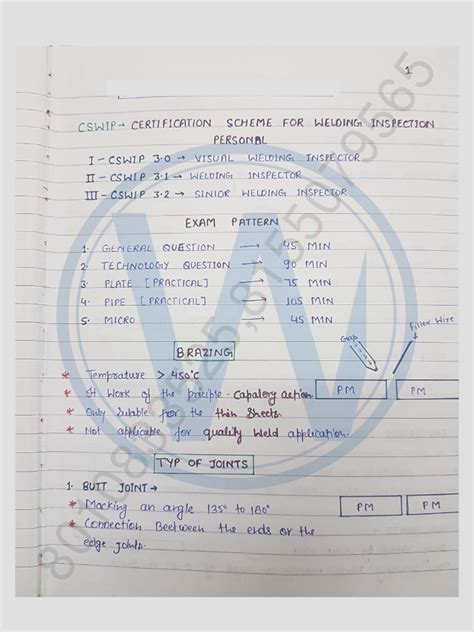 1
CSWIP → CERTIFICATION SCHEME FOR WELDING INSPECTION
PERSONAL
I - CSWIP 3.0 → VISUAL WELDING INSPECTOR
II - CSWIP 3.1 → WELDING INSPECTOR
III - CSWIP 3.2 → SINIOR WELDING INSPECTOR
EXAM PATTERN
1. GENERAL QUESTION → 45 MIN
2. TECHNOLOGY QUESTION → 90 MIN
3. PLATE [PRACTICAL] → 75 MIN
4. PIPE [PRACTICAL] → 105 MIN
5. MICRO 45 MIN
Filler Wire
Gap
BRAZING
* Temprature > 450°C
* It Work of the priciple - Capalary action.
PM PM
* Only Sutable for the thin Sheets.
* Not applicable for quality Weld application.
TYP OF JOINTS
1. BUTT JOINT →
* Macking an angle 135° to 180°
PM PM
* Connection Beetween the ends or the
edge joints.